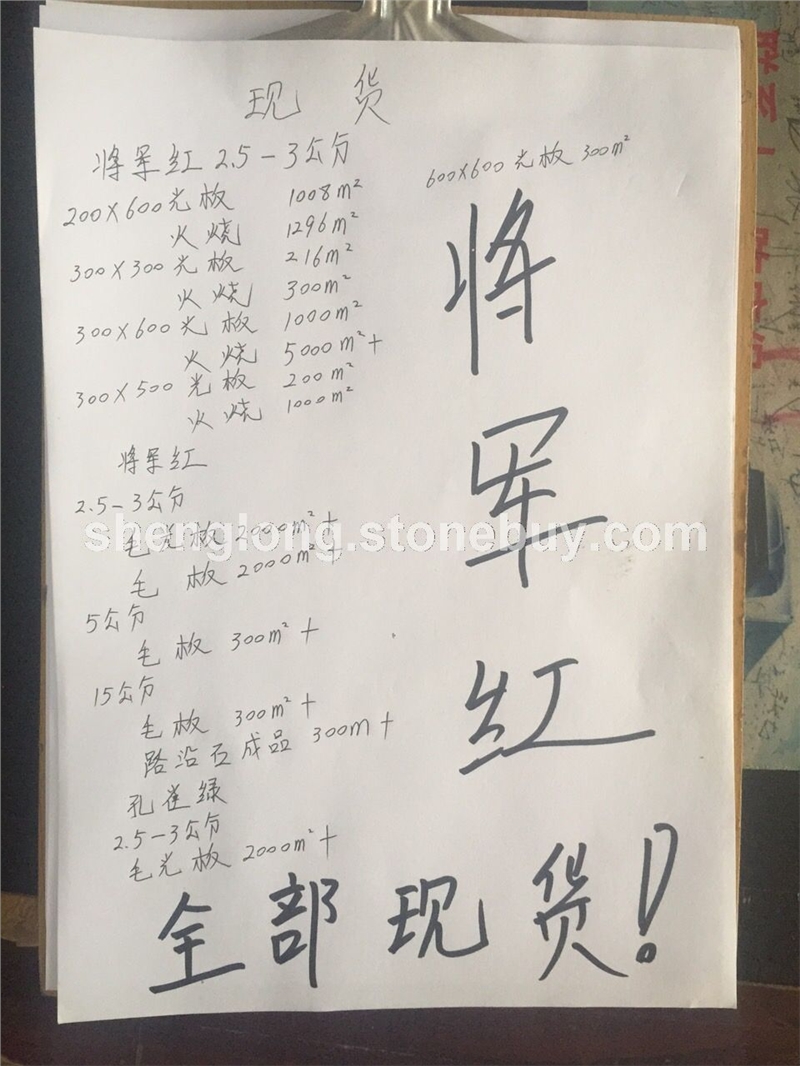 现货
将军红 2.5-3公分
200X600光板 1008m²
火烧 1296m²
300X300光板 216m²
火烧 300m²
300X600光板 1000m²
火烧 5000m²+
300X500光板 200m²
火烧 1000m²
将军红
2.5-3公分
毛光板 2000m²+
毛板 2000m²+
5公分
毛板 300m²+
15公分
毛板 300m²+
路沿石成品 300m+
孔雀绿
2.5-3公分
毛光板 2000m²+
600X600光板 300m²
将
军
红
全部现货!
shenglong.stonebuy.com